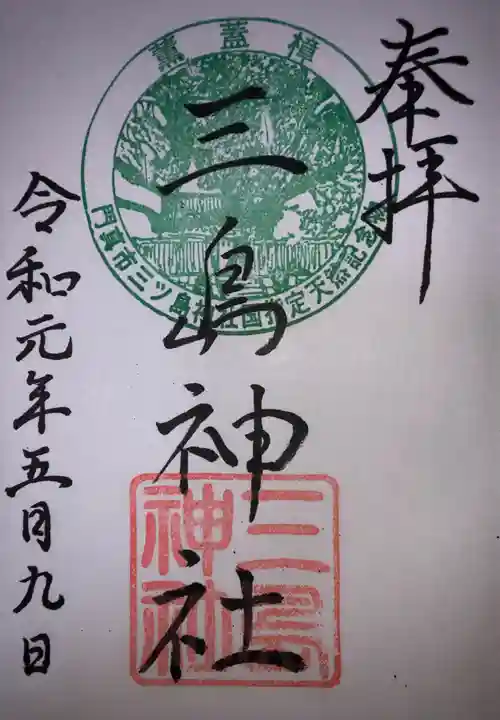 奉拝
三島神社
令和元年五月九日
薫蓋樟
門真市三ツ島神社国指定天然記念物
三島神社